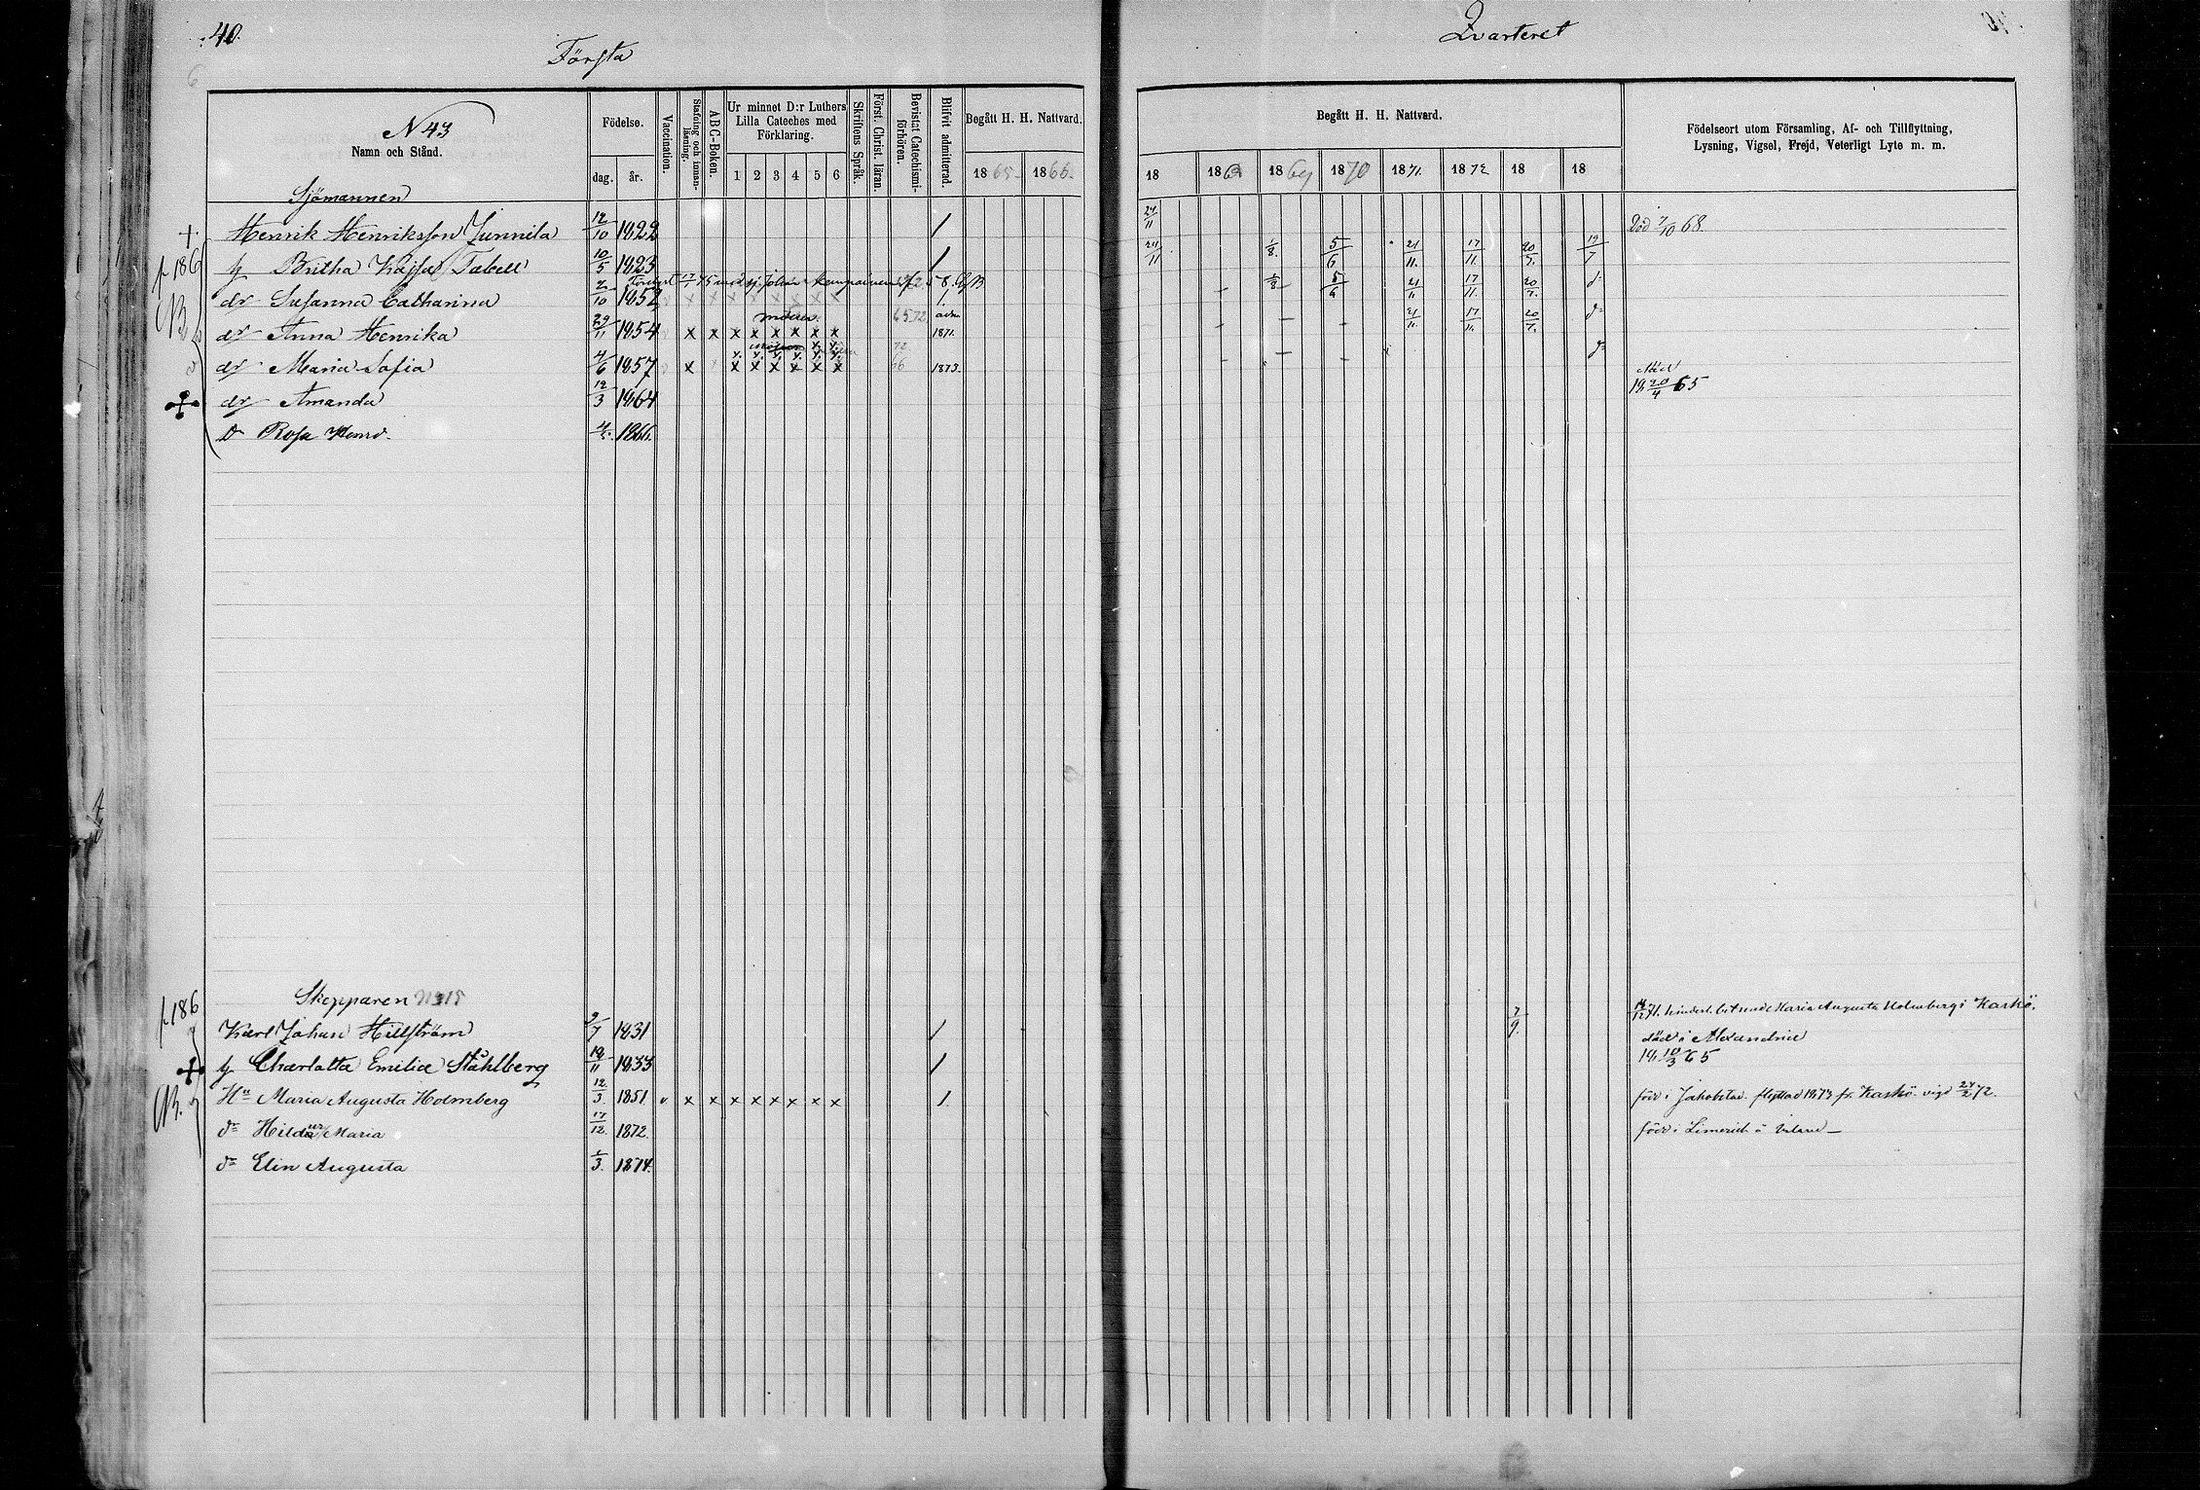 40.
Första
Qvarteret
N 43
Namn och Stånd.
Födelse.
dag. år.
Vaccination.
Stafning och innan-läsning.
ABC-Boken.
Ur minnet D:r Luthers Lilla Cateches med Förklaring.
1 2 3 4 5 6
Skriftens Språk.
Först. Christ. läran.
Bevistat Catechismi-förhören.
Blifvit admitterad.
Begått H. H. Nattvard.
1865 1866
Begått H. H. Nattvard.
18 18 1869 1870 1871. 1872 18 18
Födelseort utom Församling, Af- och Tillflyttning, Lysning, Vigsel, Frejd, Veterligt Lyte m. m.
Sjömannen
+ Henrik Henriksson Junnila 12/10 1822 / 24/11 Död 7/10 68.
h Britha Kajsa Tabell 10/5 1823 / 24/11 1/8. 5/6 21/11. 17/11 20/7. 19/7
dr Susanna Catharina 2/10 1852 1. 1/8 5/6 21/11 17/11. 20/7.
dr Anna Henrika 29/11 1854 x x x x x x x x 1871. 21/11. 17/11. 20/7.
dr Maria Sofia 4/6 1857 x x x x x x x 1873.
dr Amanda 12/3 1864 död 18 20/4 65
D Rosa 1866.
Skepparen
Karl Johan Hillström 9/7 1831 / 7/9. 14/12 71. hindersl. bet. med Maria Augusta Holmberg i Kaskö.
h Charlotta Emilia Ståhlberg 19/11 1833 / död i Alexandria 18 10/3 65
Hu Maria Augusta Holmberg 12/3. 1851 v x x x x x x x x 1. född i Jakobstad. flyttad 1873 fr. Kaskö. vigd 24/2 72.
Dr Hilda Maria 17/12. 1872. född i Limerick å Irland
Dr Elin Augusta 1/3. 1874.